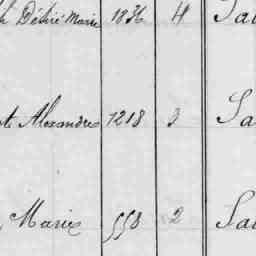 h Désiré Marie 1836 4 Sa
te Alexandre 1218 3 Sa
Marie 558 2 Sa